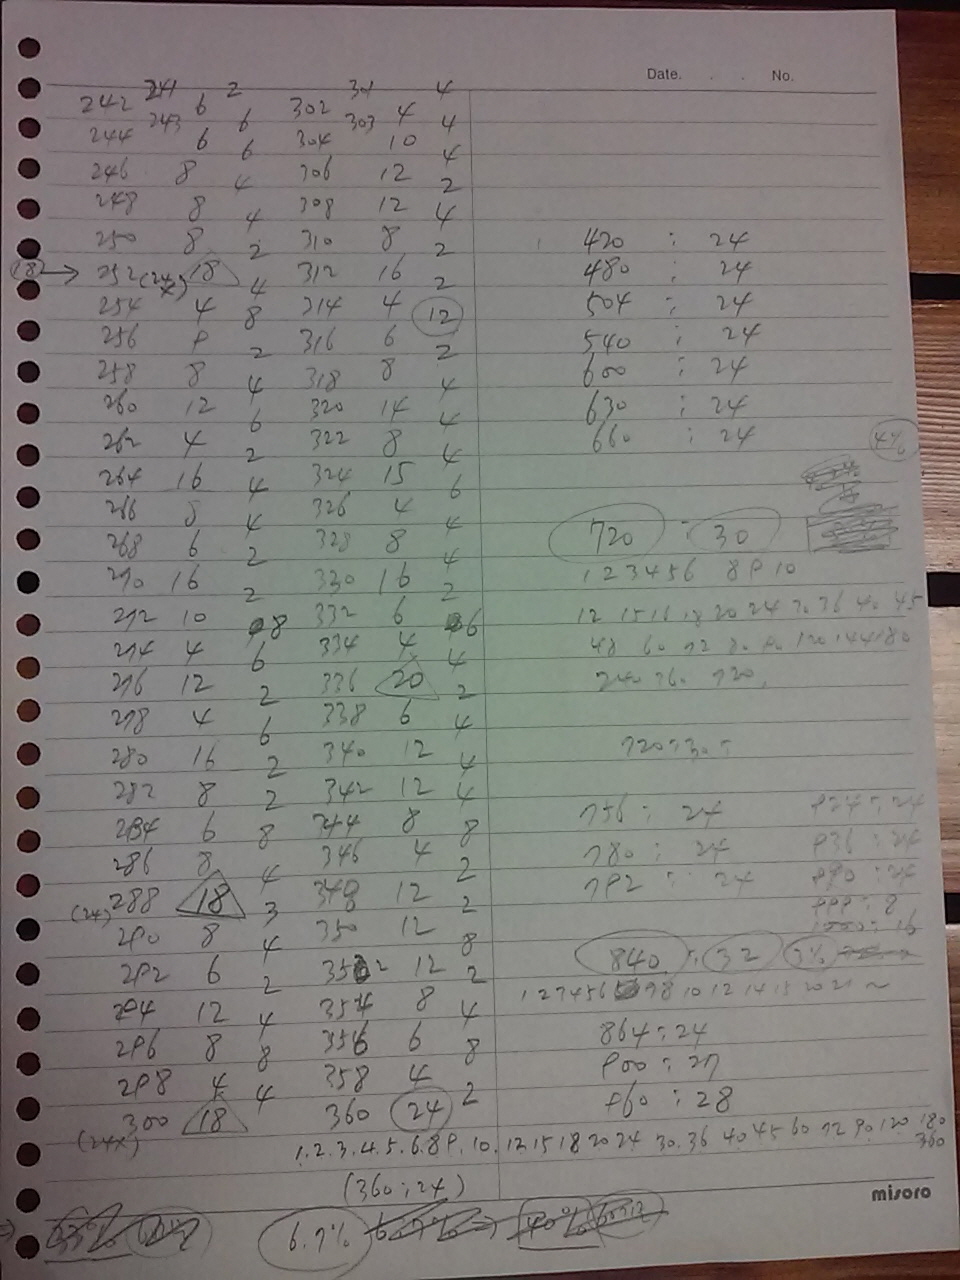 Date. . . No.
241 2 301 4
242 6 302 4
243 6 303 4
244 6 6 304 10 4
246 8 4 306 12 2
248 8 4 308 12 4
250 8 2 310 8 2
420 : 24
(18) → 252 (24x) 18 4 312 16 2
480 : 24
254 4 8 314 4 12
504 : 24
256 9 2 316 6 2
540 : 24
258 8 4 318 8 4
600 : 24
260 12 6 320 14 4
630 : 24
262 4 2 322 8 4
660 : 24
4%
264 16 4 324 15 6
266 8 4 326 4 4
268 6 2 328 8 4
720 : 30
270 16 2 330 16 2
1 2 3 4 5 6 8 9 10
272 10 8 332 6 6
12 15 16 18 20 24 30 36 40 45
274 4 6 334 4 4
48 60 72 80 90 120 144 180
276 12 2 336 20 2
240 360 720
278 4 6 338 6 4
280 16 2 340 12 4
720 : 30 :
282 8 2 342 12 4
284 6 8 344 8 8
756 : 24 924 : 24
286 8 4 346 4 2
780 : 24 936 : 24
(24) 288 18 3 348 12 2
792 : 24 990 : 24
999 : 8
1000 : 16
290 8 4 350 12 8
840 : 32 3%
292 6 2 352 12 2
1 2 3 4 5 6 7 8 10 12 14 15 20 21 ~
294 12 4 354 8 4
864 : 24
296 8 8 356 6 8
900 : 27
298 4 4 358 4 2
960 : 28
300 18 360 24
(24x)
1. 2. 3. 4. 5. 6. 8 9. 10. 12 15 18 20 24 30. 36 40 45 60 72 90. 120 180
360
(360 : 24)
misoro
6.7%